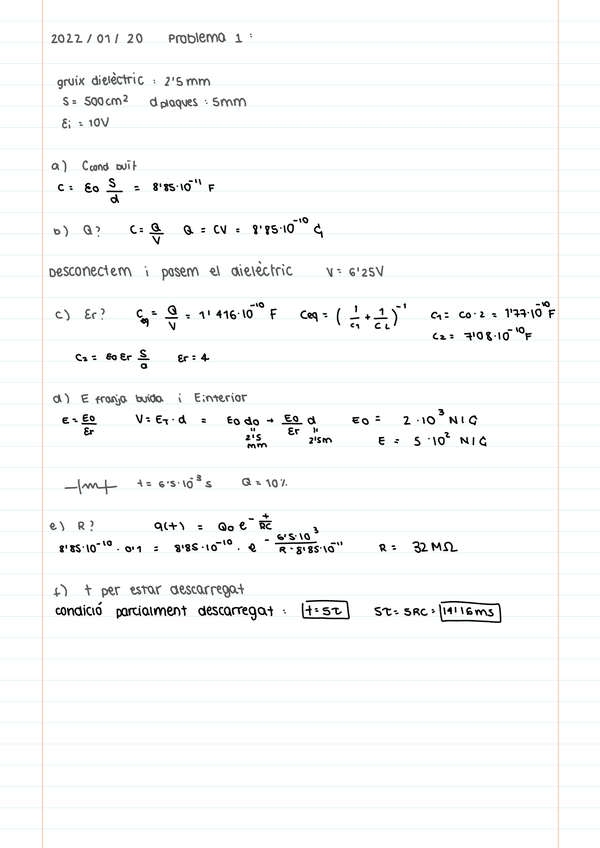 2022/01/20 Problema 1:
gruix dielèctric : 2'5mm
S= 500cm² d plaques : 5mm
Ɛi = 10V
a) Ccond buit
C = Ɛ0 S/d = 8'85·10⁻¹¹ F
b) Q? C = Q/V Q = CV = 8'85·10⁻¹⁰ C
Desconectem i posem el dielèctric V = 6'25V
c) Ɛr? Ceq = Q/V = 1'416·10⁻¹⁰ F Ceq = (1/C1 + 1/C2)⁻¹ C1 = C0·2 = 1'77·10⁻¹⁰ F
C2 = 7'08·10⁻¹⁰ F
C2 = Ɛ0 Ɛr S/d Ɛr = 4
d) E franja buida i Einterior
E = E0/Ɛr V = ET·d = E0 d0 + E0/Ɛr d E0 = 2·10³ N/C
2'5 mm 2'5m E = 5·10² N/C
t = 6'5·10⁻³ s Q = 10%
e) R? q(t) = Q0 e^-t/RC
8'85·10⁻¹⁰ · 0'1 = 8'85·10⁻¹⁰ · e^-6'5·10³/R·8'85·10⁻¹¹ R = 32 MΩ
f) t per estar descarregat
condició parcialment descarregat : t=5τ 5τ = 5RC = 14'16ms